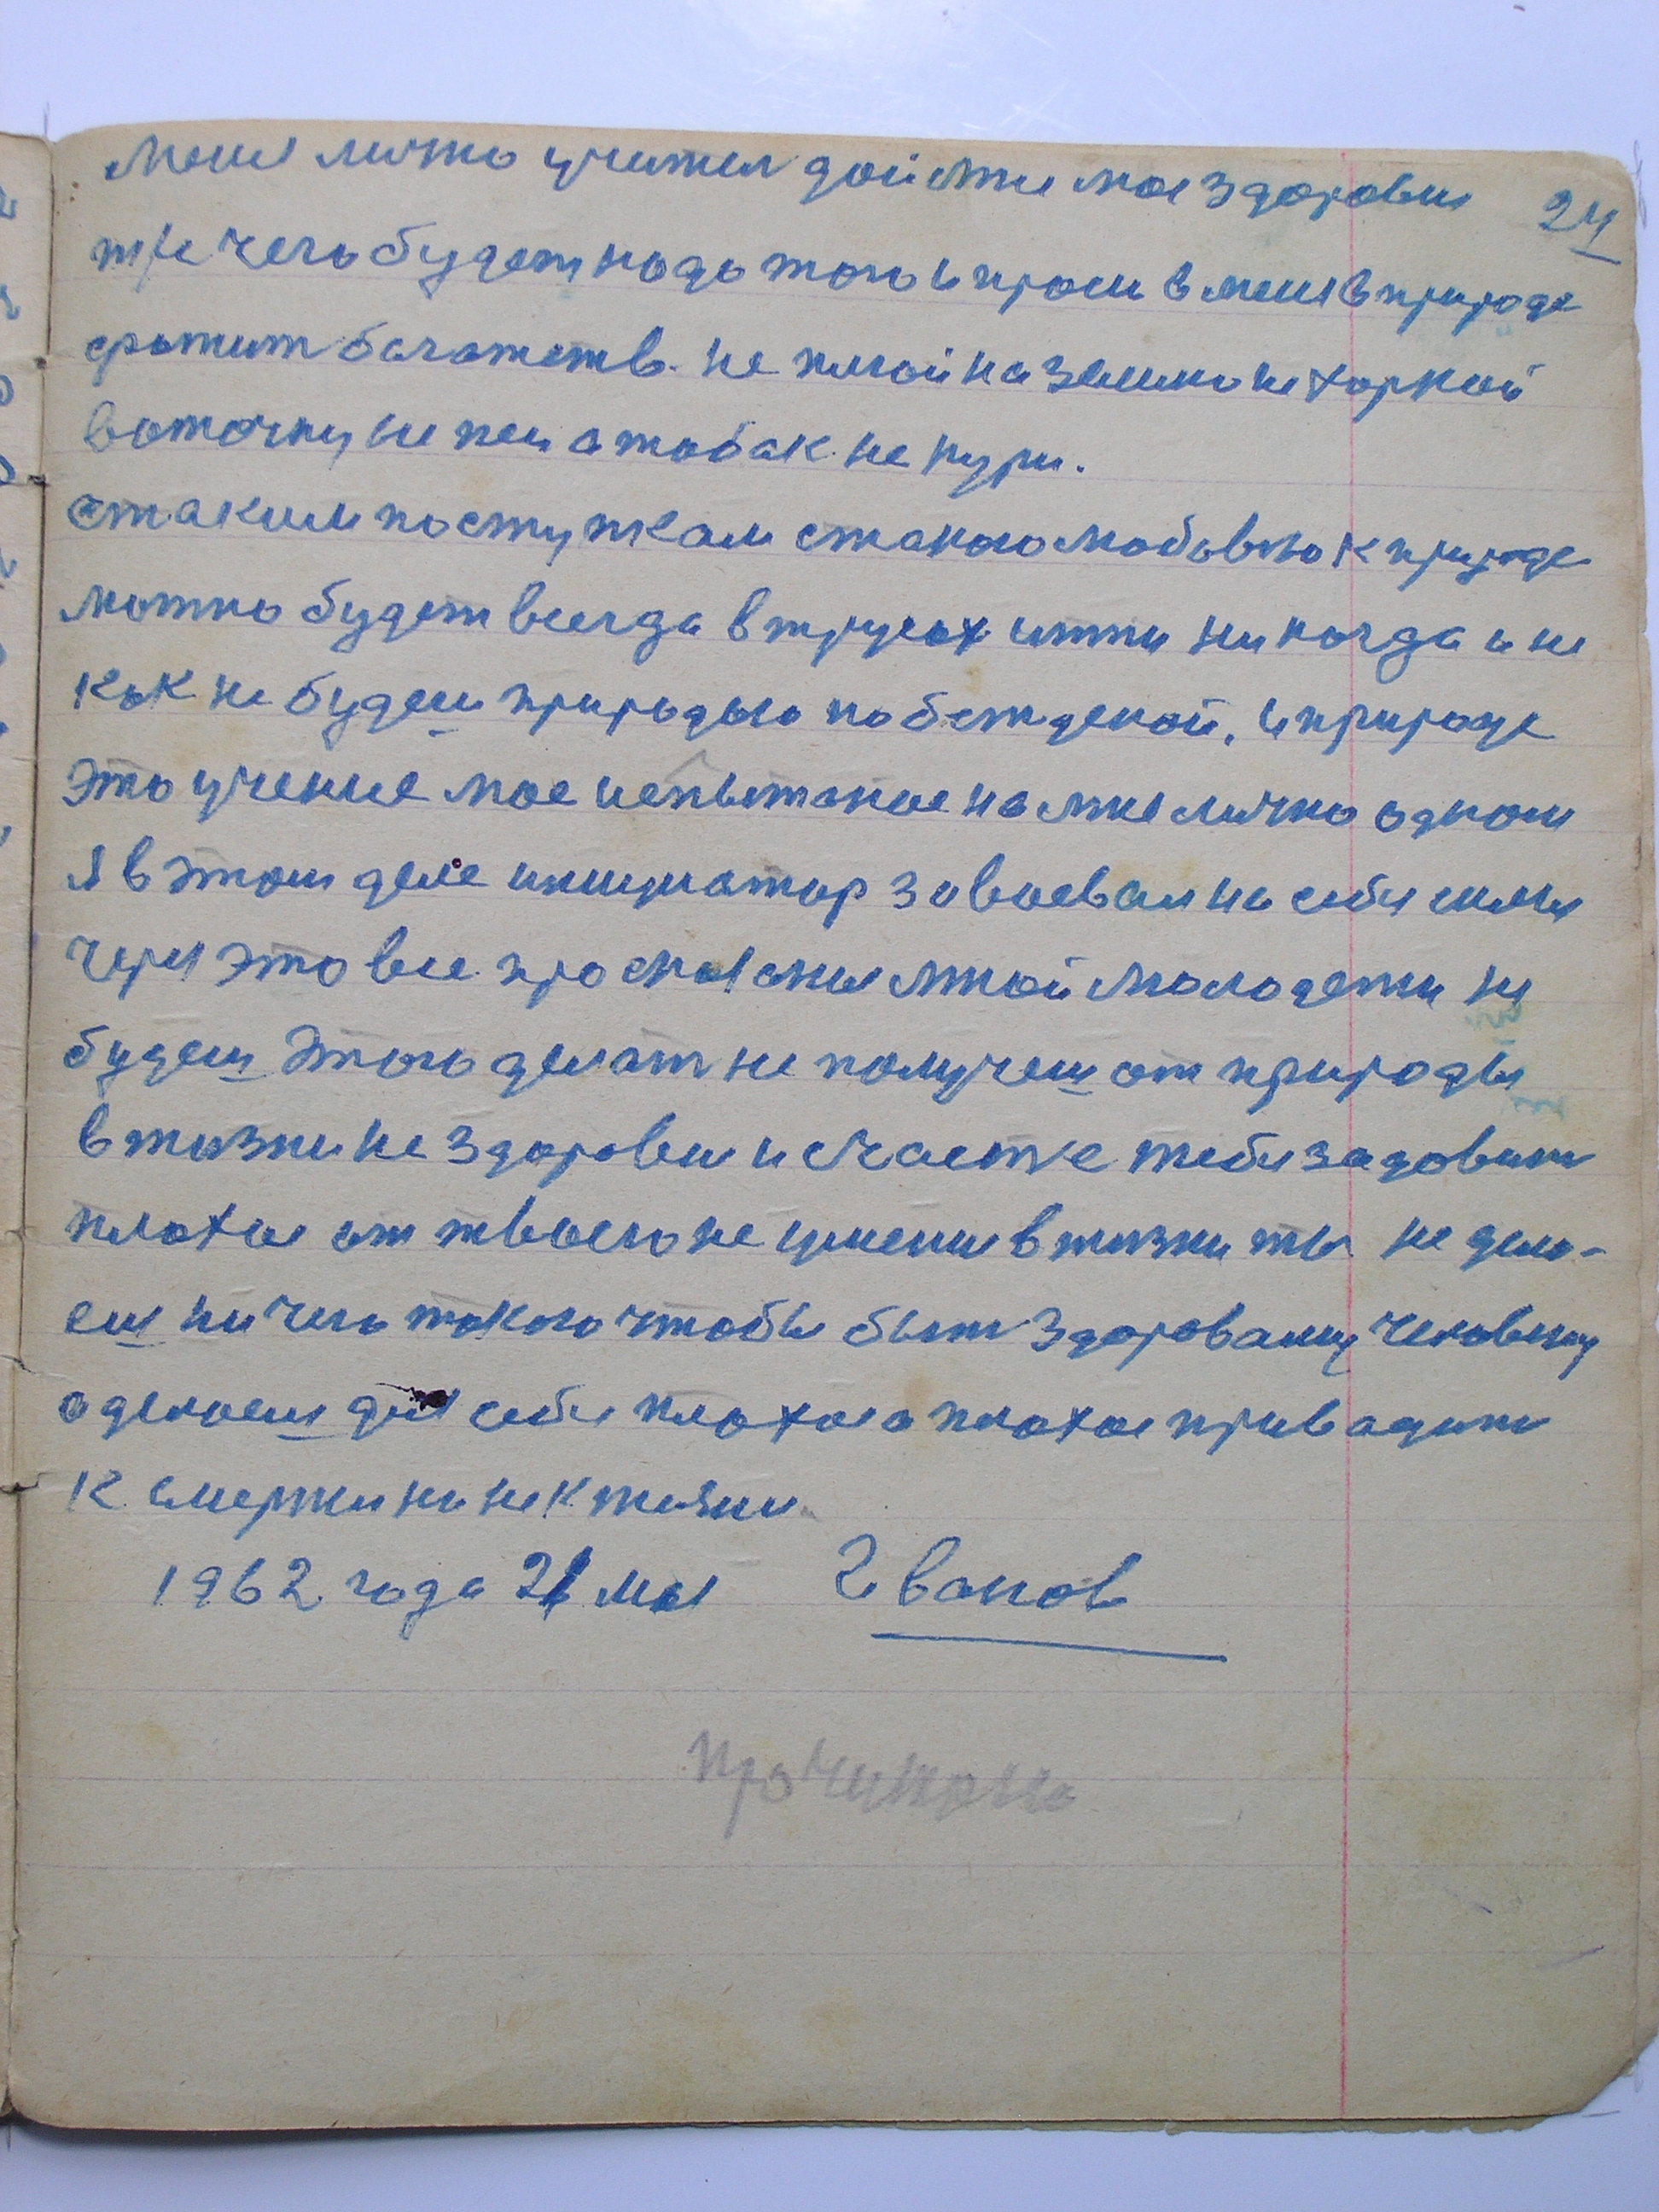 меня лично учител дай мне мое здоровия 24
т/е чего будет надо того и проси в меня в природе
не плюй на землю не харкай
водочку не пей а тобак не кури.
стаким поступкам стакою любовю к природе
можно будет всегда в трусах итти ни когда и не
как не будеш природою побежденой, и природе
это учение мое испытаное на мне лично одном
я в этом деле инициатор завоевал на себя
через это все прославления мной молодежи не
будеш этого делат не получеш от природы
в жизни не здоровия и счастье тебя задовит
плохое от твоего не умения в жизни ты не дела-
еш ни чего такого чтобы быт здоровому человеку
а делаеш для себя плохое а плохое привадит
к смерти но не к жизни
1962 года 21 мая Иванов
прочитано